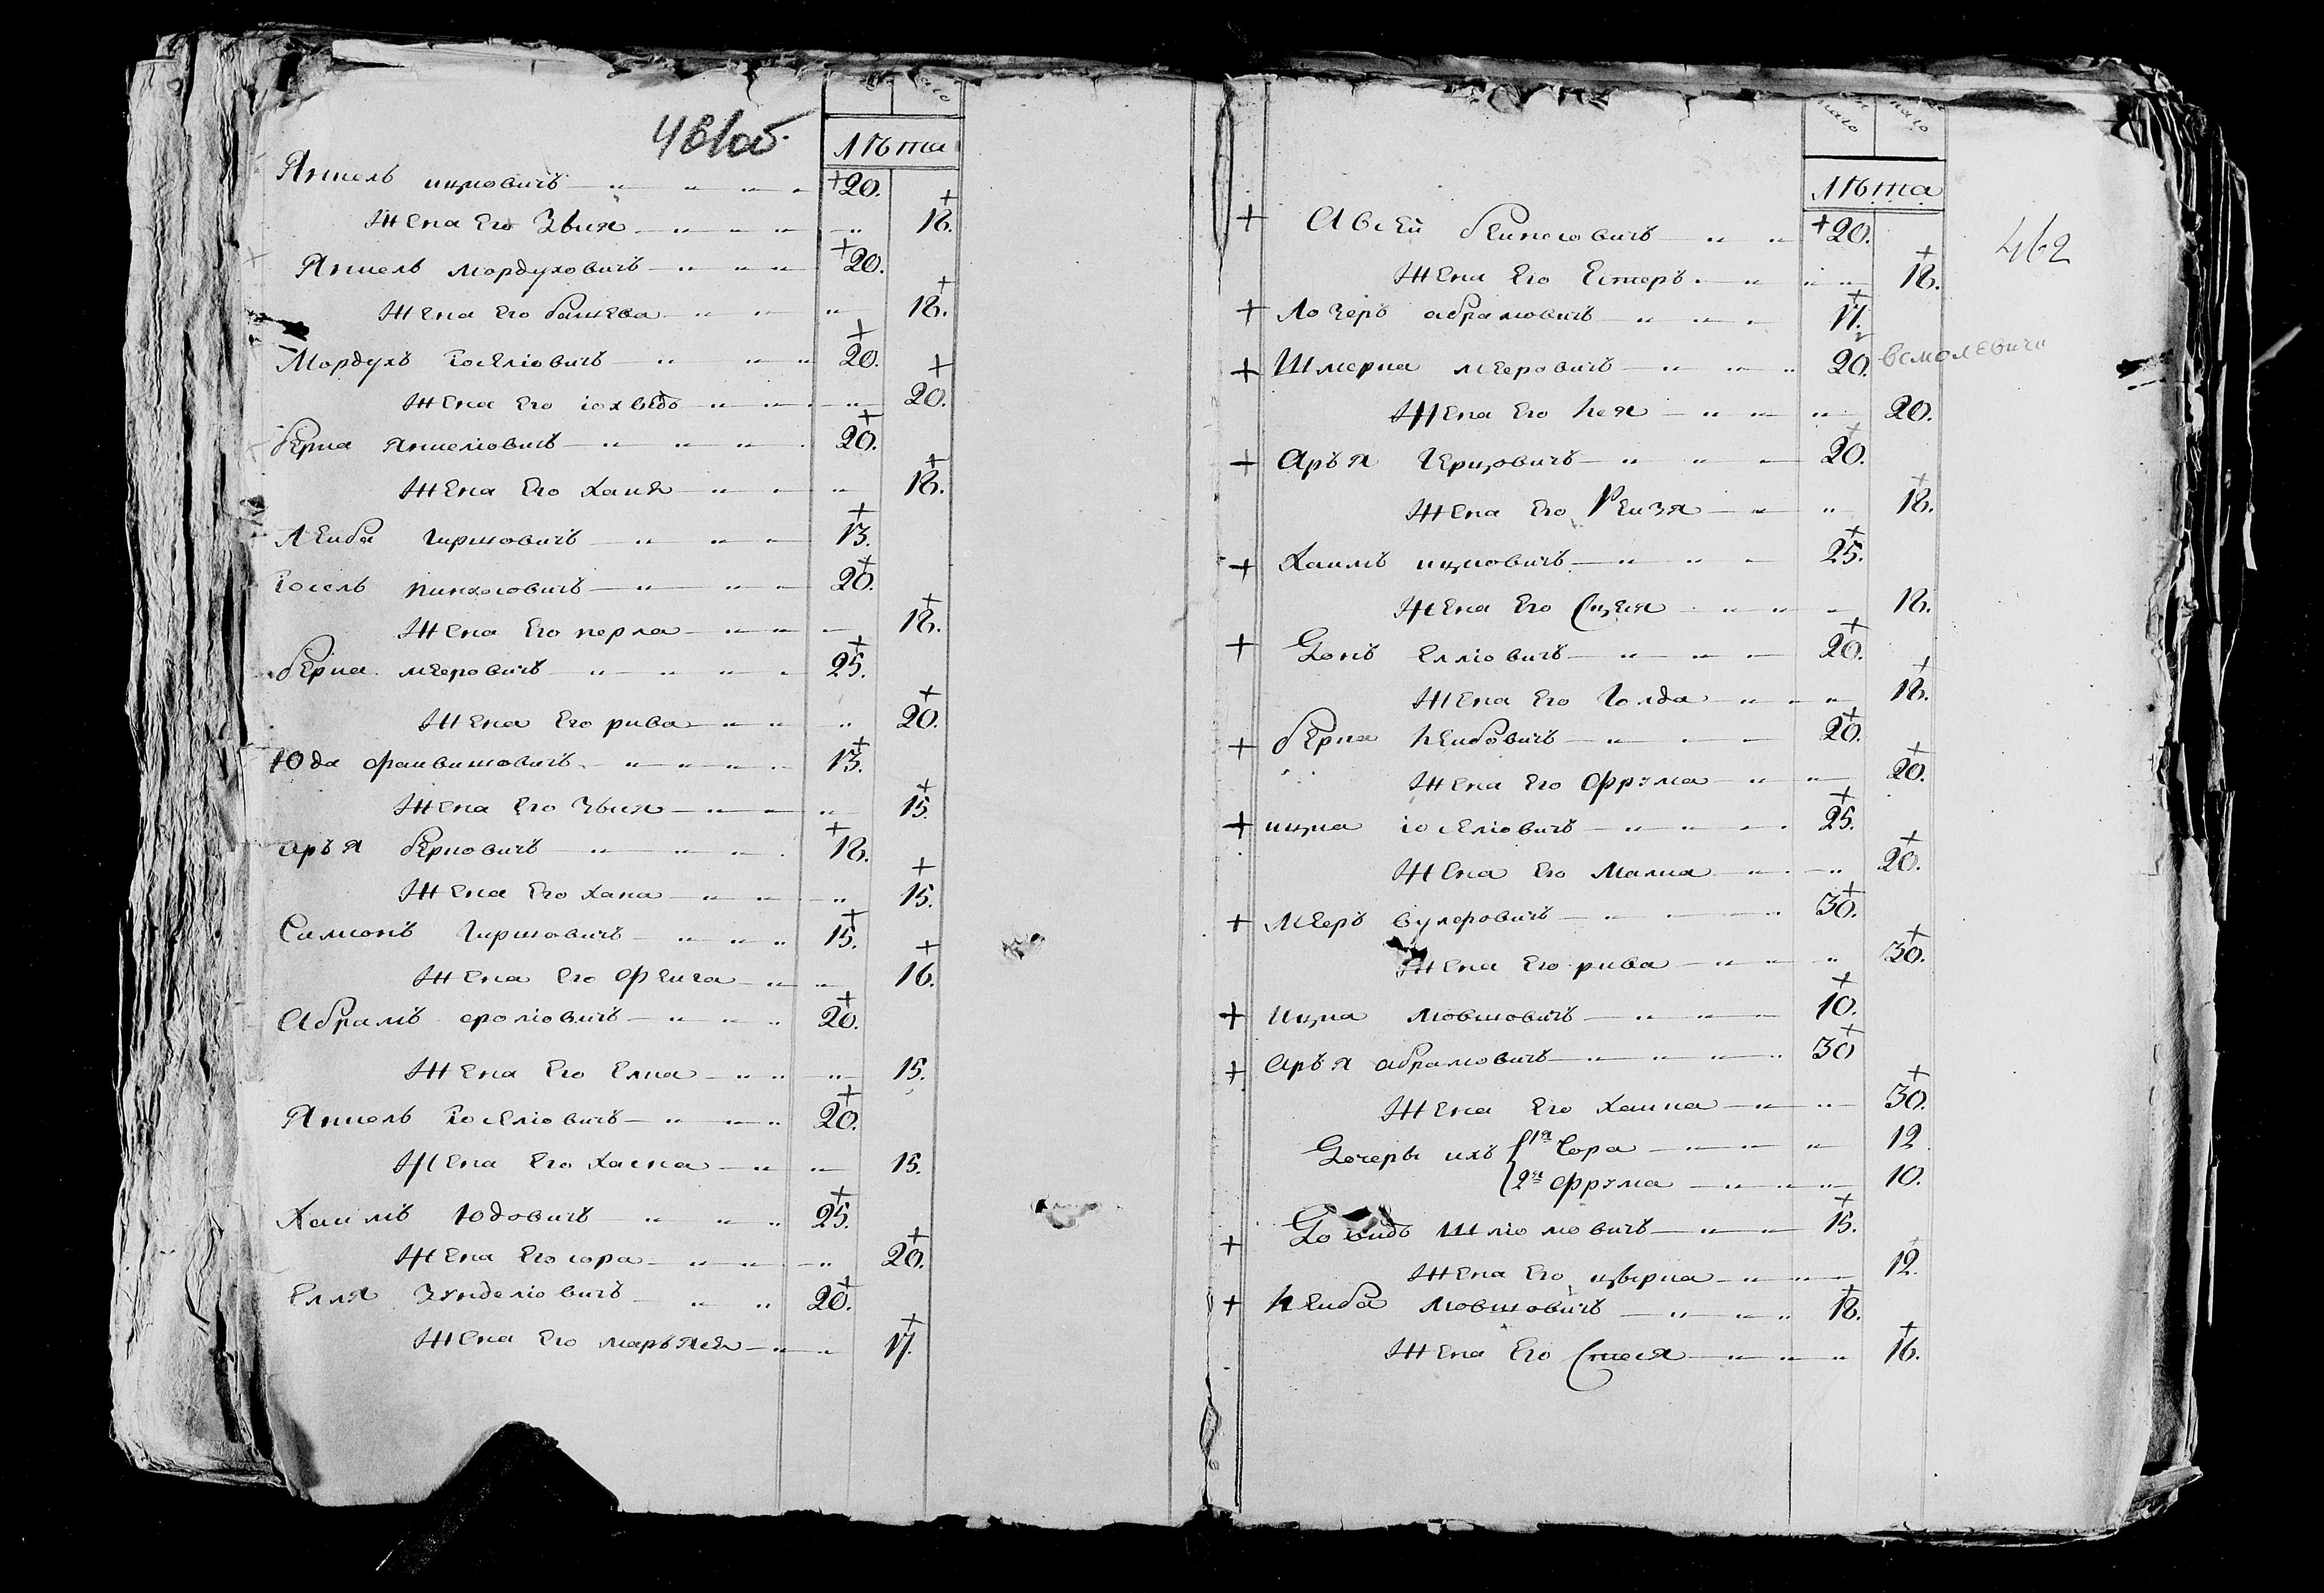 461об.
лѣта
Янкель ицковичъ — „ „ „ 20.
Жена Его Звия — „ „ „ 18.
Янкель Мордуховичъ — „ „ „ 20.
Жена Его башева — „ „ „ 18.
Мордухъ іоселіовичъ — „ „ „ 20.
Жена Его іохведъ — „ „ „ 20.
берка янкеліовичъ — „ „ „ 20.
Жена Его Хаия — „ „ „ 18.
Леиба Гиршовичъ — „ „ „ 13.
іосель пинхосовичъ — „ „ „ 20.
Жена Его перла — „ „ „ 18.
берка мееровичъ — „ „ „ 25.
Жена Его рива — „ „ „ 20.
Юда фаивишовичъ — „ „ „ 13.
Жена Его Звия — „ „ „ 15.
аръя берковичъ — „ „ „ 18.
Жена Его хана — „ „ „ 15.
Симонъ Гиршовичъ — „ „ „ 15.
Жена Его Феига — „ „ 16.
Абрамъ сроліовичъ — „ „ „ 20.
Жена Его Елка — „ „ „ 15.
Янкель іоселіовичъ — „ „ „ 20.
Жена Его Хаска — „ „ 15.
Хаимъ Юдовичъ — „ „ „ 25.
Жена Его сора — „ „ „ 20.
Елля Зунделіовичъ — „ „ 20.
Жена Его маръяся — „ „ 17.
462
лѣта
Авсей беинесовичъ — „ „ 20.
Жена Его Естеръ — „ „ „ 18.
Лозеръ абрамовичъ — „ „ „ 17.
Шмерка мееровичъ — „ „ „ 20. всмолевичи
Жена Его лея — „ „ „ 20.
Аръя Герцовичъ — „ „ „ 20.
Жена Его Реизя — „ „ 18.
Хаимъ ицковичъ — „ „ „ 25.
Жена Его Сцея — „ „ „ 18.
Донъ Елліовичъ — „ „ „ 20.
Жена Его Голда — „ „ „ 18.
берка леибовичъ — „ „ „ 20.
Жена Его Фрума — „ „ 20.
ицка іоселіовичъ — „ „ „ 25.
Жена Его Малка — „ „ „ 20.
Мееръ вулфовичъ — „ „ „ 30.
Жена Его рива — „ „ „ 30.
Ицка мовшовичъ — „ „ „ 10.
аръя абрамовичъ — „ „ „ 30
Жена Его Хаика — „ „ 30.
Дочеры ихъ 1я Сора — „ „ „ 12
2я Фрума — „ „ „ 10.
Довидъ Шліомовичъ — „ „ 15.
Жена Его цверка — „ „ 12.
леиба мовшовичъ — „ „ „ 18.
Жена Его Стеся — „ „ „ 16.